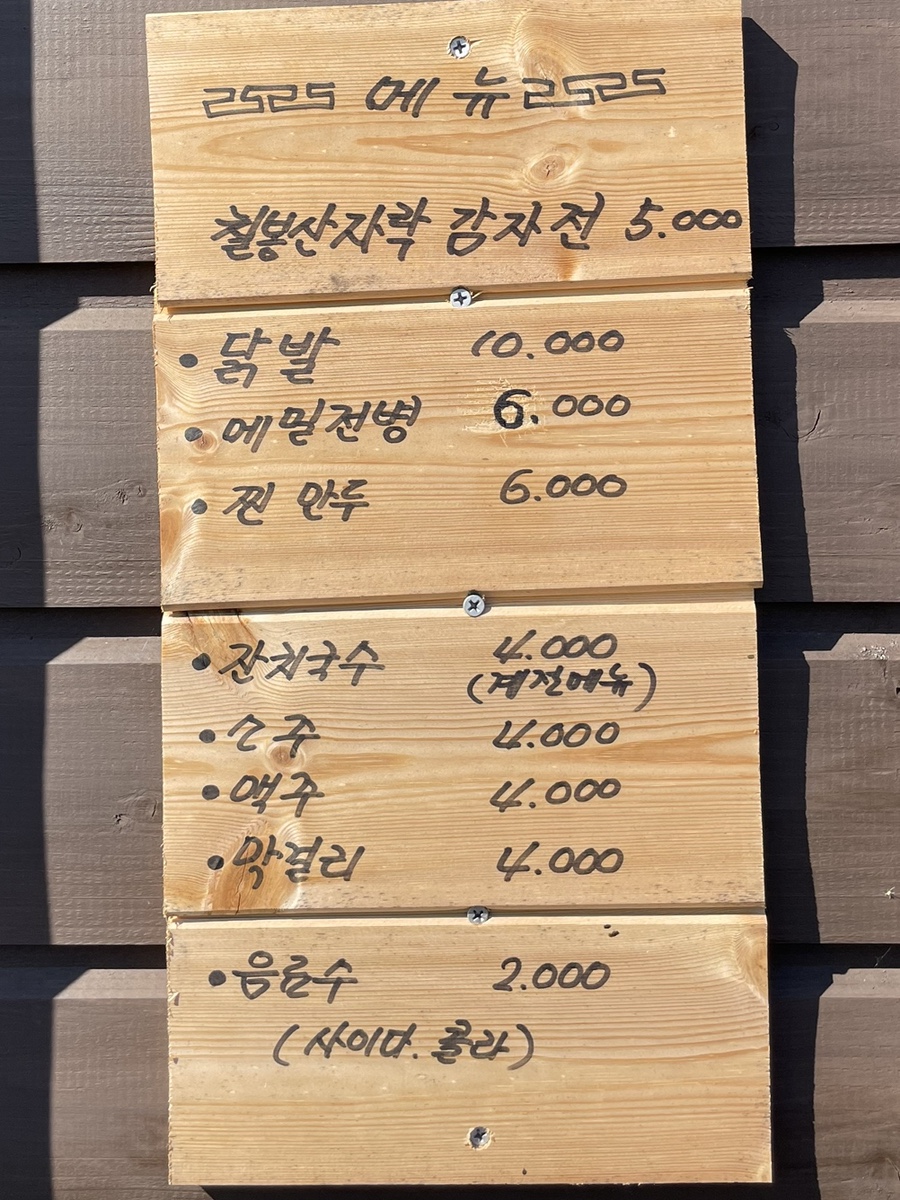 메뉴
철봉산자락 감자전 5.000
• 닭발 10.000
• 메밀전병 6.000
• 찐 만두 6.000
• 잔치국수 4.000
(계절메뉴)
• 소주 4.000
• 맥주 4.000
• 막걸리 4.000
• 음료수 2.000
(사이다. 콜라)